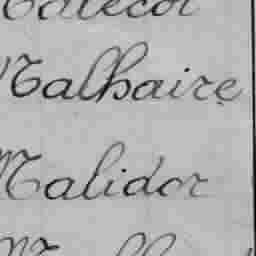 Malhaire
Malidor